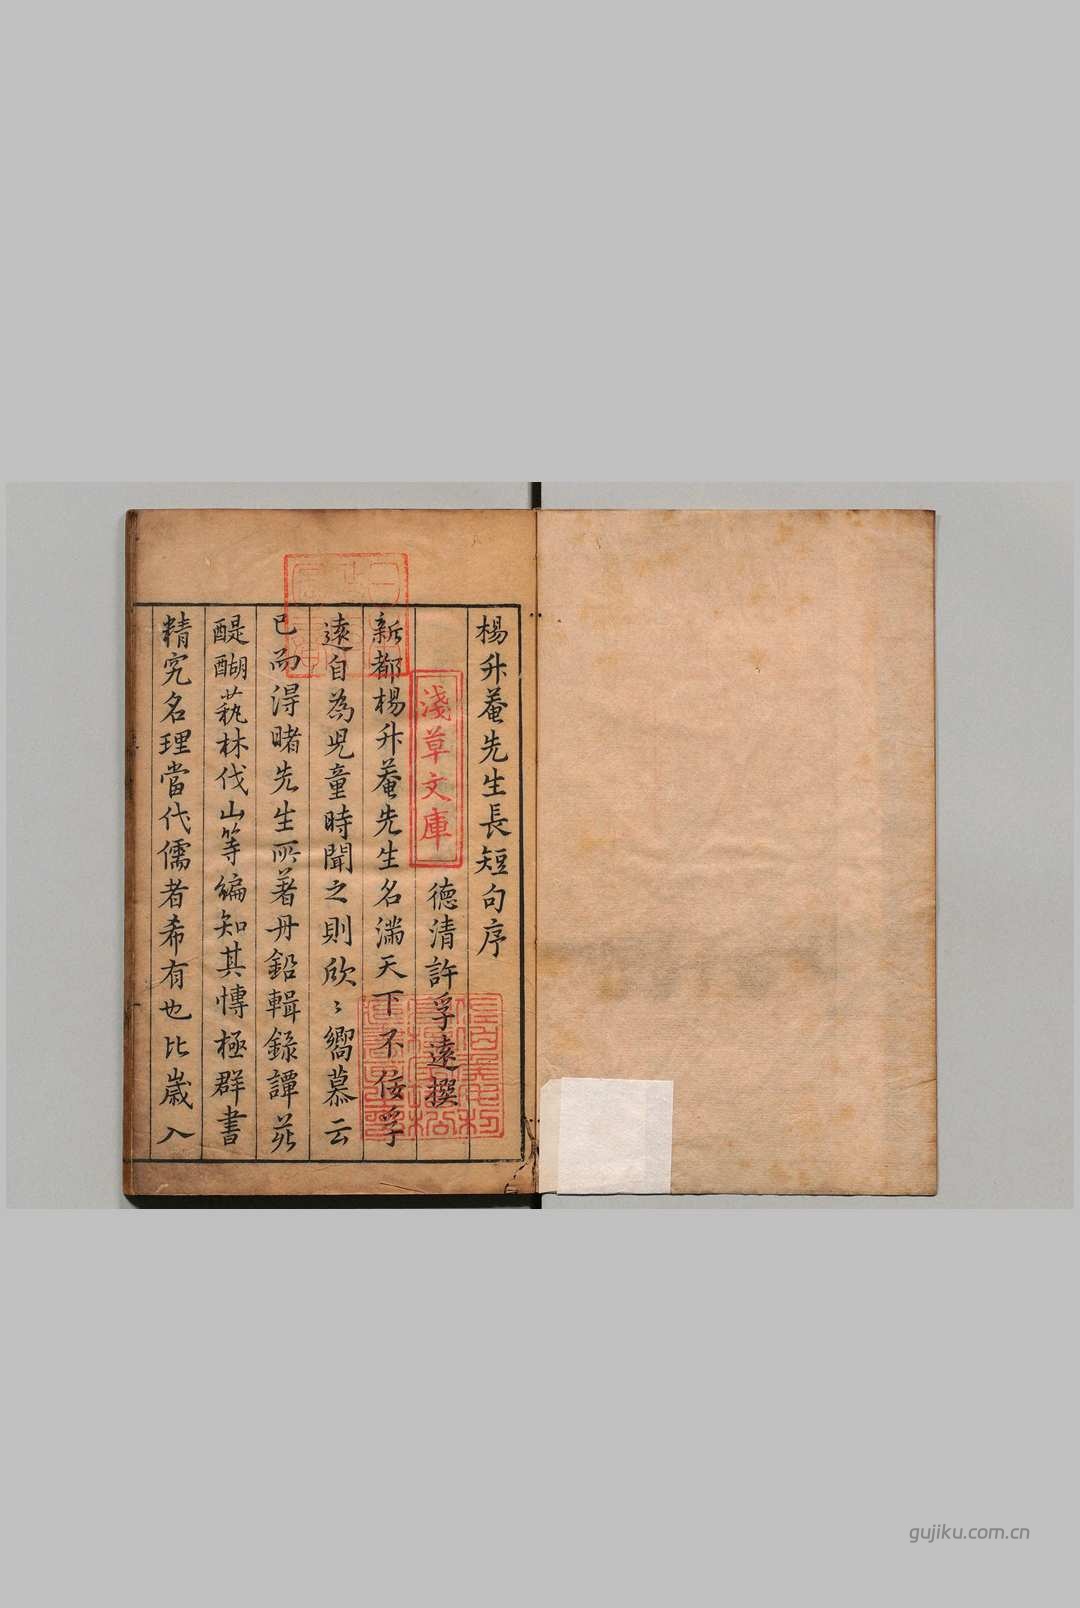 楊升菴先生長短句序
德清許孚遠撰
新都楊升菴先生名滿天下不佞孚
遠自為児童時聞之則欣〻嚮慕云
已而得睹先生所著丹鉛輯錄譚苑
醍醐蓺林伐山等編知其慱極群書
精究名理當代儒者希有也比歲入
淺草文庫
gujiku.com.cn